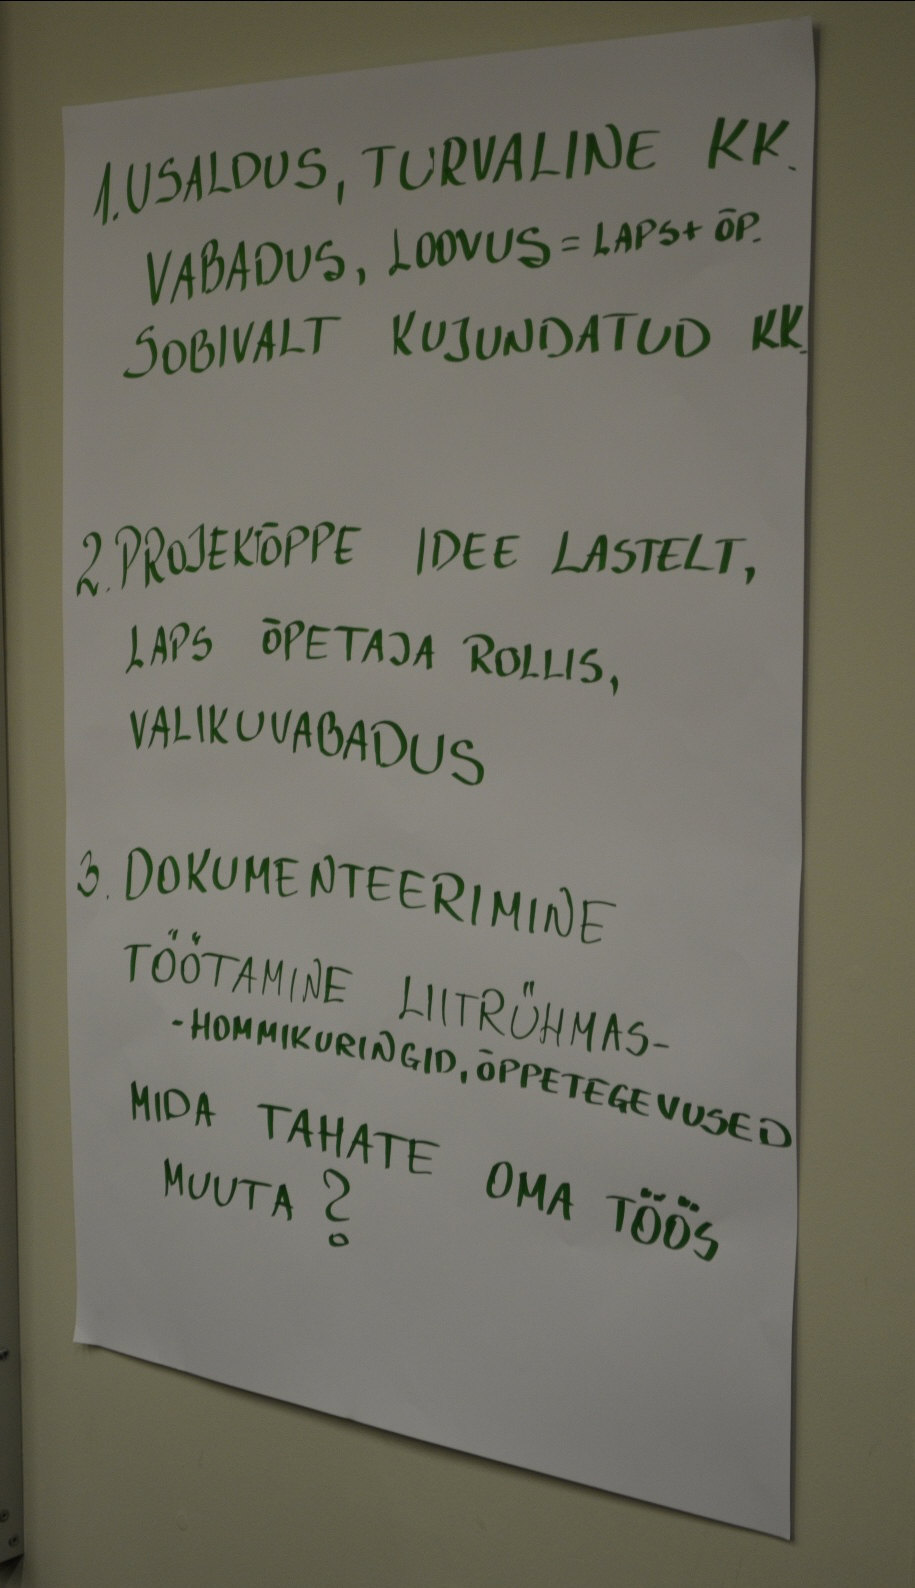 1. USALDUS, TURVALINE KK.
VABADUS, LOOVUS = LAPS + ÕP.
SOBIVALT KUJUNDATUD KK.
2. PROJEKTÕPPE IDEE LASTELT,
LAPS ÕPETAJA ROLLIS,
VALIKUVABADUS
3. DOKUMENTEERIMINE
TÖÖTAMINE LIITRÜHMAS-
- HOMMIKURINGID, ÕPPETEGEVUSED
MIDA TAHATE OMA TÖÖS
MUUTA?